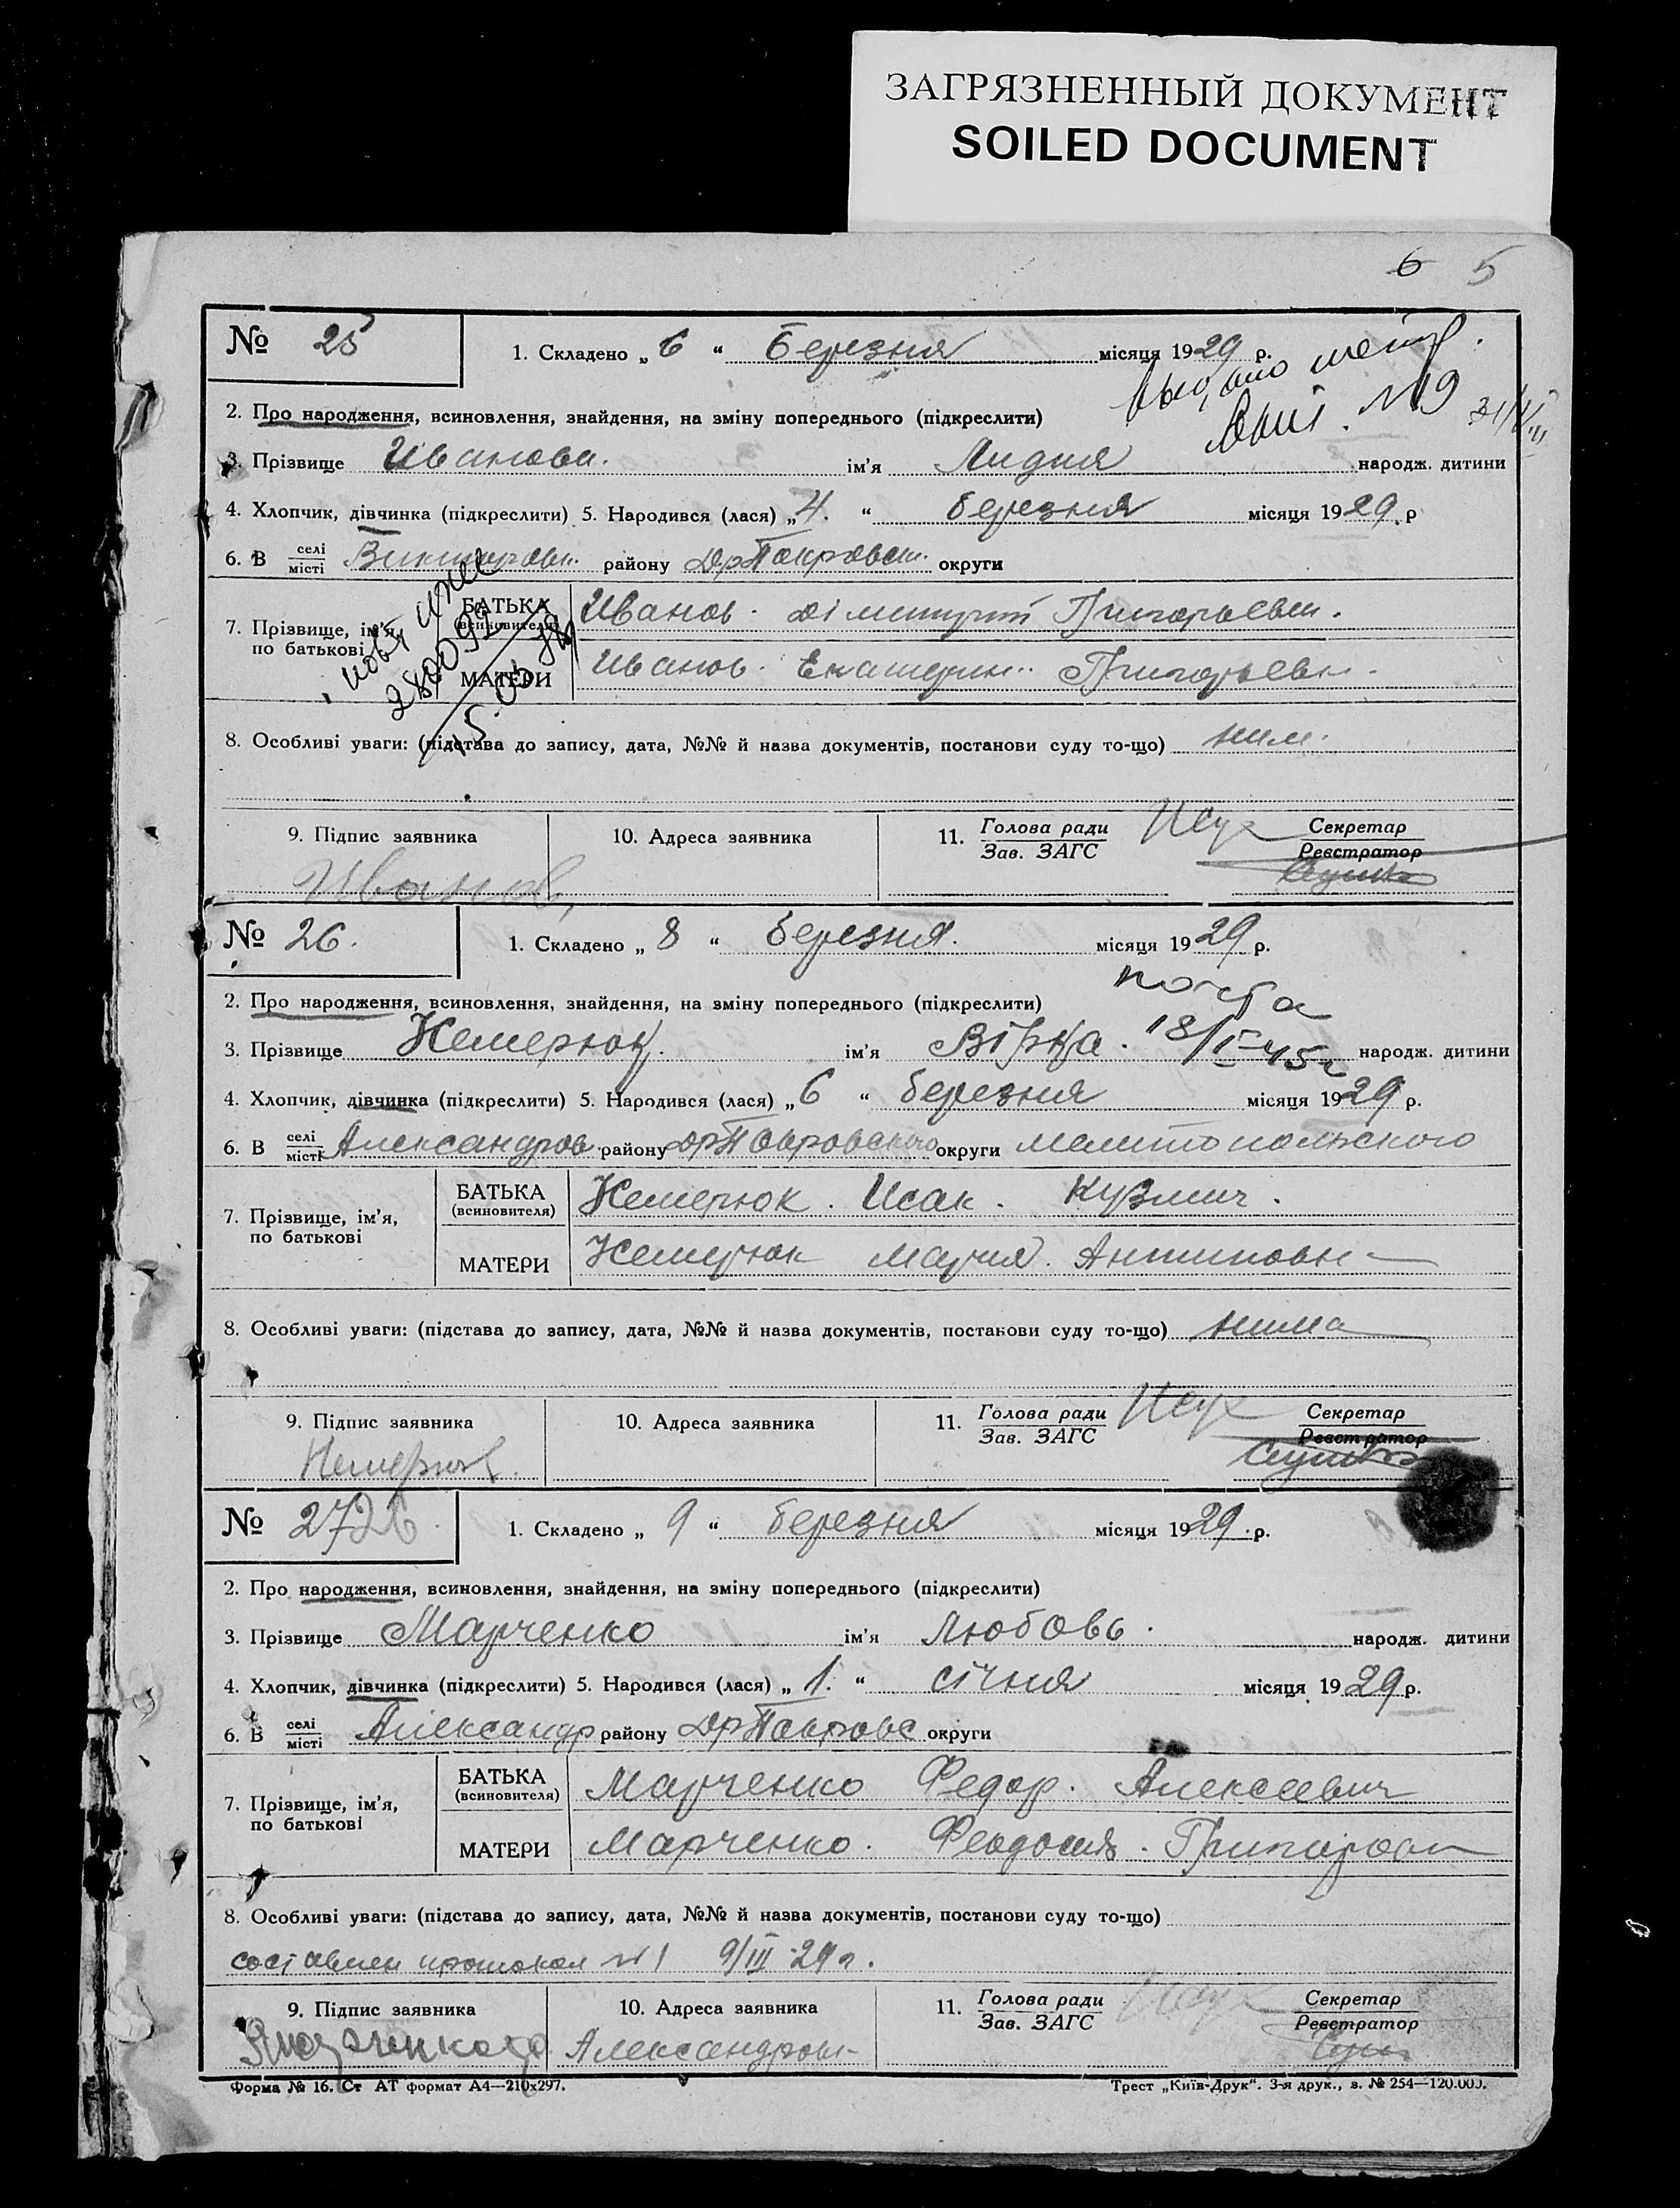 ЗАГРЯЗНЕННЫЙ ДОКУМЕНТ
SOILED DOCUMENT
6 5
№ 25 1. Складено „ 6 “ березня місяця 1929 р.
2. Про народження, всиновлення, знайдення, на зміну попереднього (підкреслити)
№9
3. Прізвище Иванова. ім'я Лидия народж. дитини
4. Хлопчик, дівчинка (підкреслити) 5. Народився (лася) „ 4. “ березня місяця 1929 р
6. В селі/місті району Др Покровськ. округи
7. Прізвище, ім'я, по батькові
БАТЬКА (всиновителя) Иванов. Дімитрій Григорьевич.
МАТЕРИ Иванов. Екатерин. Григорьевн.
8. Особливі уваги: (підстава до запису, дата, №№ й назва документів, постанови суду то-що) ним.
9. Підпис заявника 10. Адреса заявника 11. Голова ради/Зав. ЗАГС Секретар/Реєстратор
Иванов
№ 26. 1. Складено „ 8 “ березня. місяця 1929 р.
почта
2. Про народження, всиновлення, знайдення, на зміну попереднього (підкреслити)
3. Прізвище Немерюк. ім'я 18/I-45г народж. дитини
4. Хлопчик, дівчинка (підкреслити) 5. Народився (лася) „ 6 “ березня місяця 1929 р.
6. В селі/місті Александров району Др Покровського округи Мелитопольского
7. Прізвище, ім'я, по батькові
БАТЬКА (всиновителя) Немерюк. Исак. Кузмич.
МАТЕРИ Немерюк Мария. Антиповн
8. Особливі уваги: (підстава до запису, дата, №№ й назва документів, постанови суду то-що) нима
9. Підпис заявника 10. Адреса заявника 11. Голова ради/Зав. ЗАГС Секретар/Реєстратор
Немерюк.
№ 27 26. 1. Складено „ 9 “ березня місяця 1929 р.
2. Про народження, всиновлення, знайдення, на зміну попереднього (підкреслити)
3. Прізвище Марченко ім'я Любовь. народж. дитини
4. Хлопчик, дівчинка (підкреслити) 5. Народився (лася) „ 1. “ січня місяця 1929 р.
6. В селі/місті Александр району Др Покровс округи
7. Прізвище, ім'я, по батькові
БАТЬКА (всиновителя) Марченко Федор. Алексеевич
МАТЕРИ Марченко. Феодосия. Григоровн
8. Особливі уваги: (підстава до запису, дата, №№ й назва документів, постанови суду то-що)
составлен протокол №1 9/III-29г.
9. Підпис заявника 10. Адреса заявника 11. Голова ради/Зав. ЗАГС Секретар/Реєстратор
Александровк
Форма № 16. Ст АТ формат А4—210х297. Трест „Київ-Друк“. 3-я друк., з. № 254—120.000.